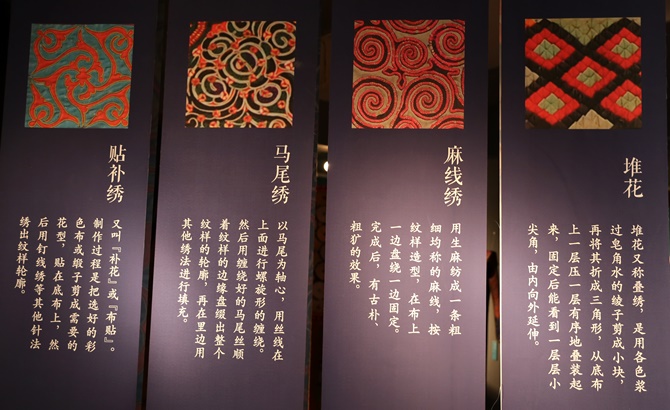 贴补绣
又叫『补花』或『布贴』。
制作过程是把选好的彩
色布或缎子剪成需要的
花型，贴在底布上，然
后用钉线绣等其他针法
绣出纹样轮廓。
马尾绣
以马尾为轴心，用丝线在
上面进行螺旋形的缠绕。
然后用缠绕好的马尾丝顺
着纹样的边缘盘缀出整个
纹样的轮廓，再在里边用
其他绣法进行填充。
麻线绣
用生麻纺成一条粗
细均称的麻线，按
纹样造型，在布上
一边盘绕一边固定。
完成后，有古朴、
粗犷的效果。
堆花
堆花又称叠绣，是用各色浆
过皂角水的绫子剪成小块，
再将其折成三角形，从底布
上一层压一层有序地叠装起
来，固定后能看到一层层小
尖角，由内向外延伸。